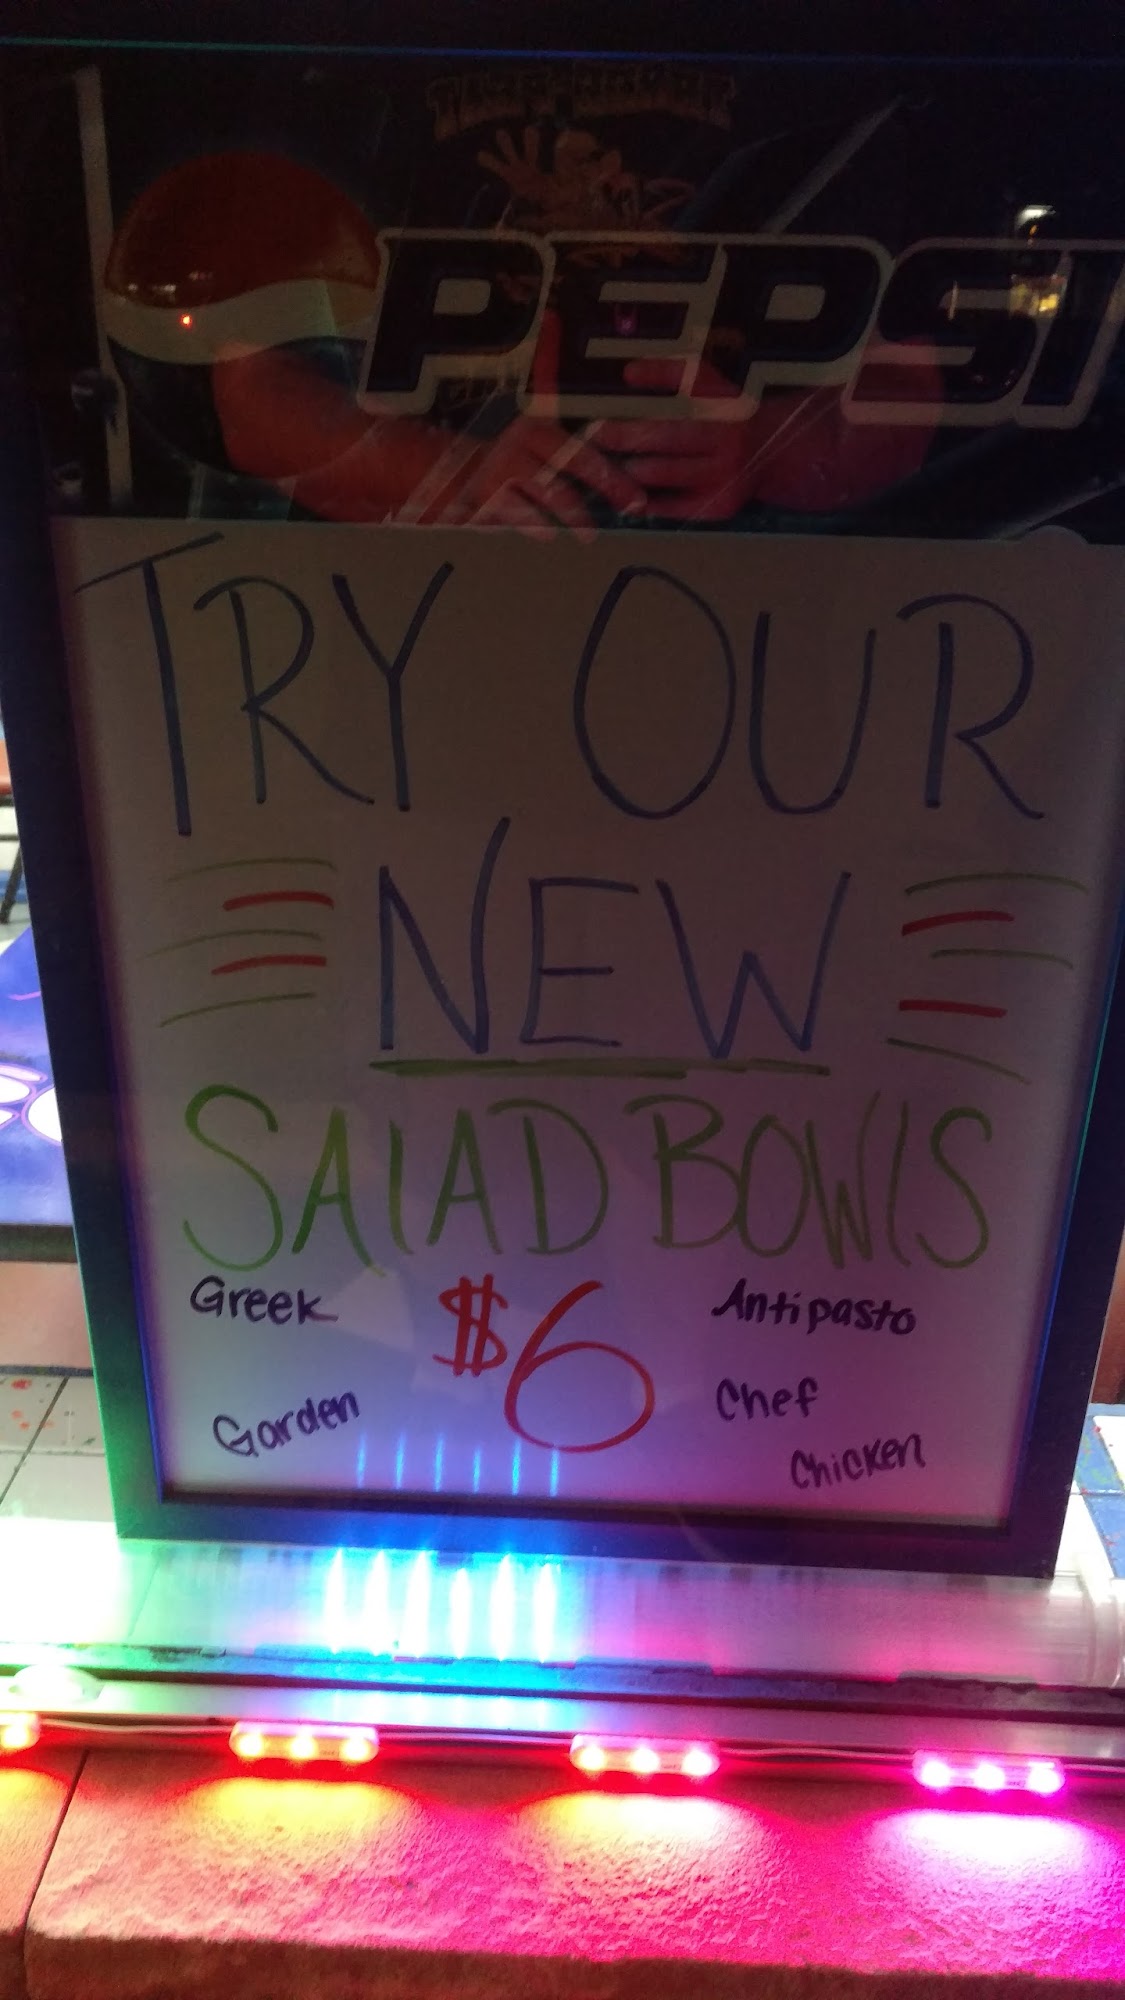 PEPSI
TRY OUR
NEW
SALAD BOWLS
Greek $6 Antipasto
Garden Chef
Chicken